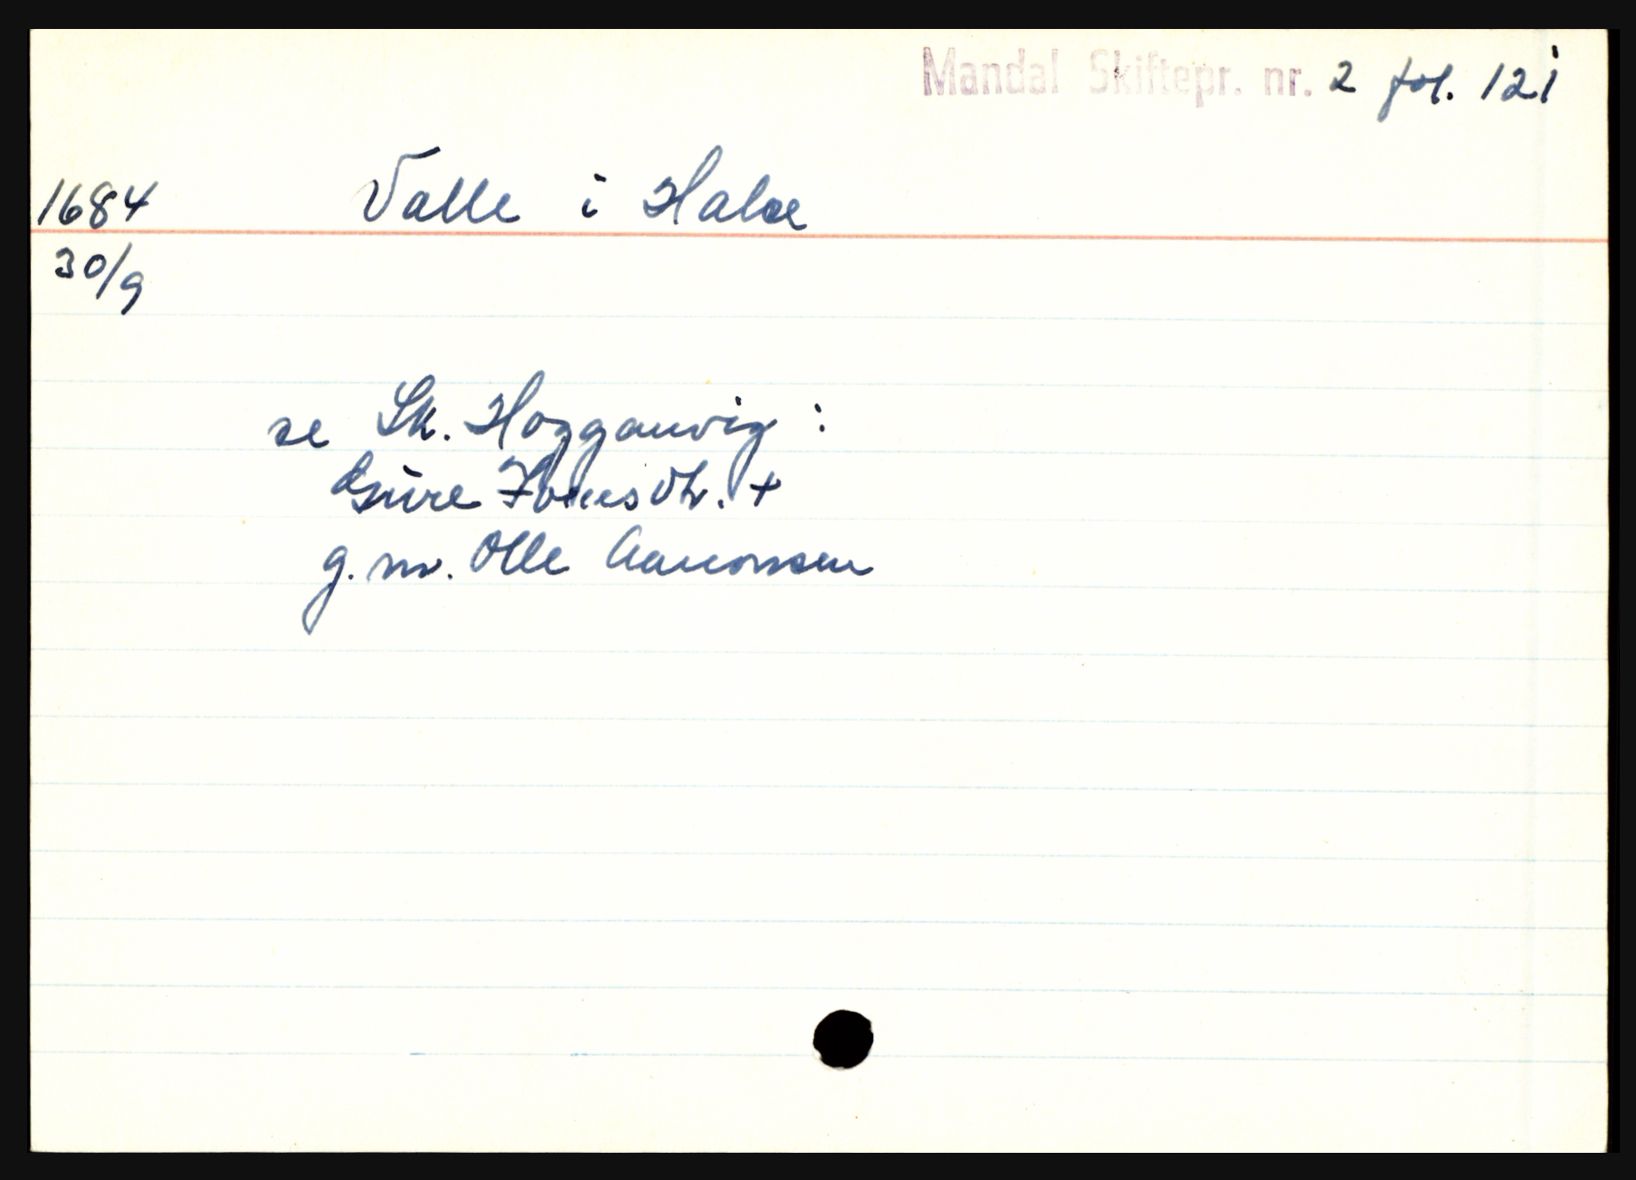 Mandal Skiftepr. nr. 2 fol. 121
1684 Valle i Halse
30/9
se Sk. Hogganvig :
Gure dtr. +
g. m. Olle Aanonsen